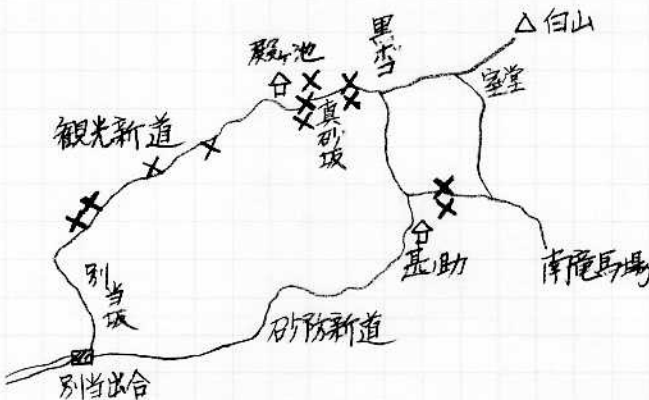 白山
黒ボコ
殿ヶ池
室堂
真砂坂
観光新道
甚ノ助
南竜馬場
別当坂
砂防新道
別当出合